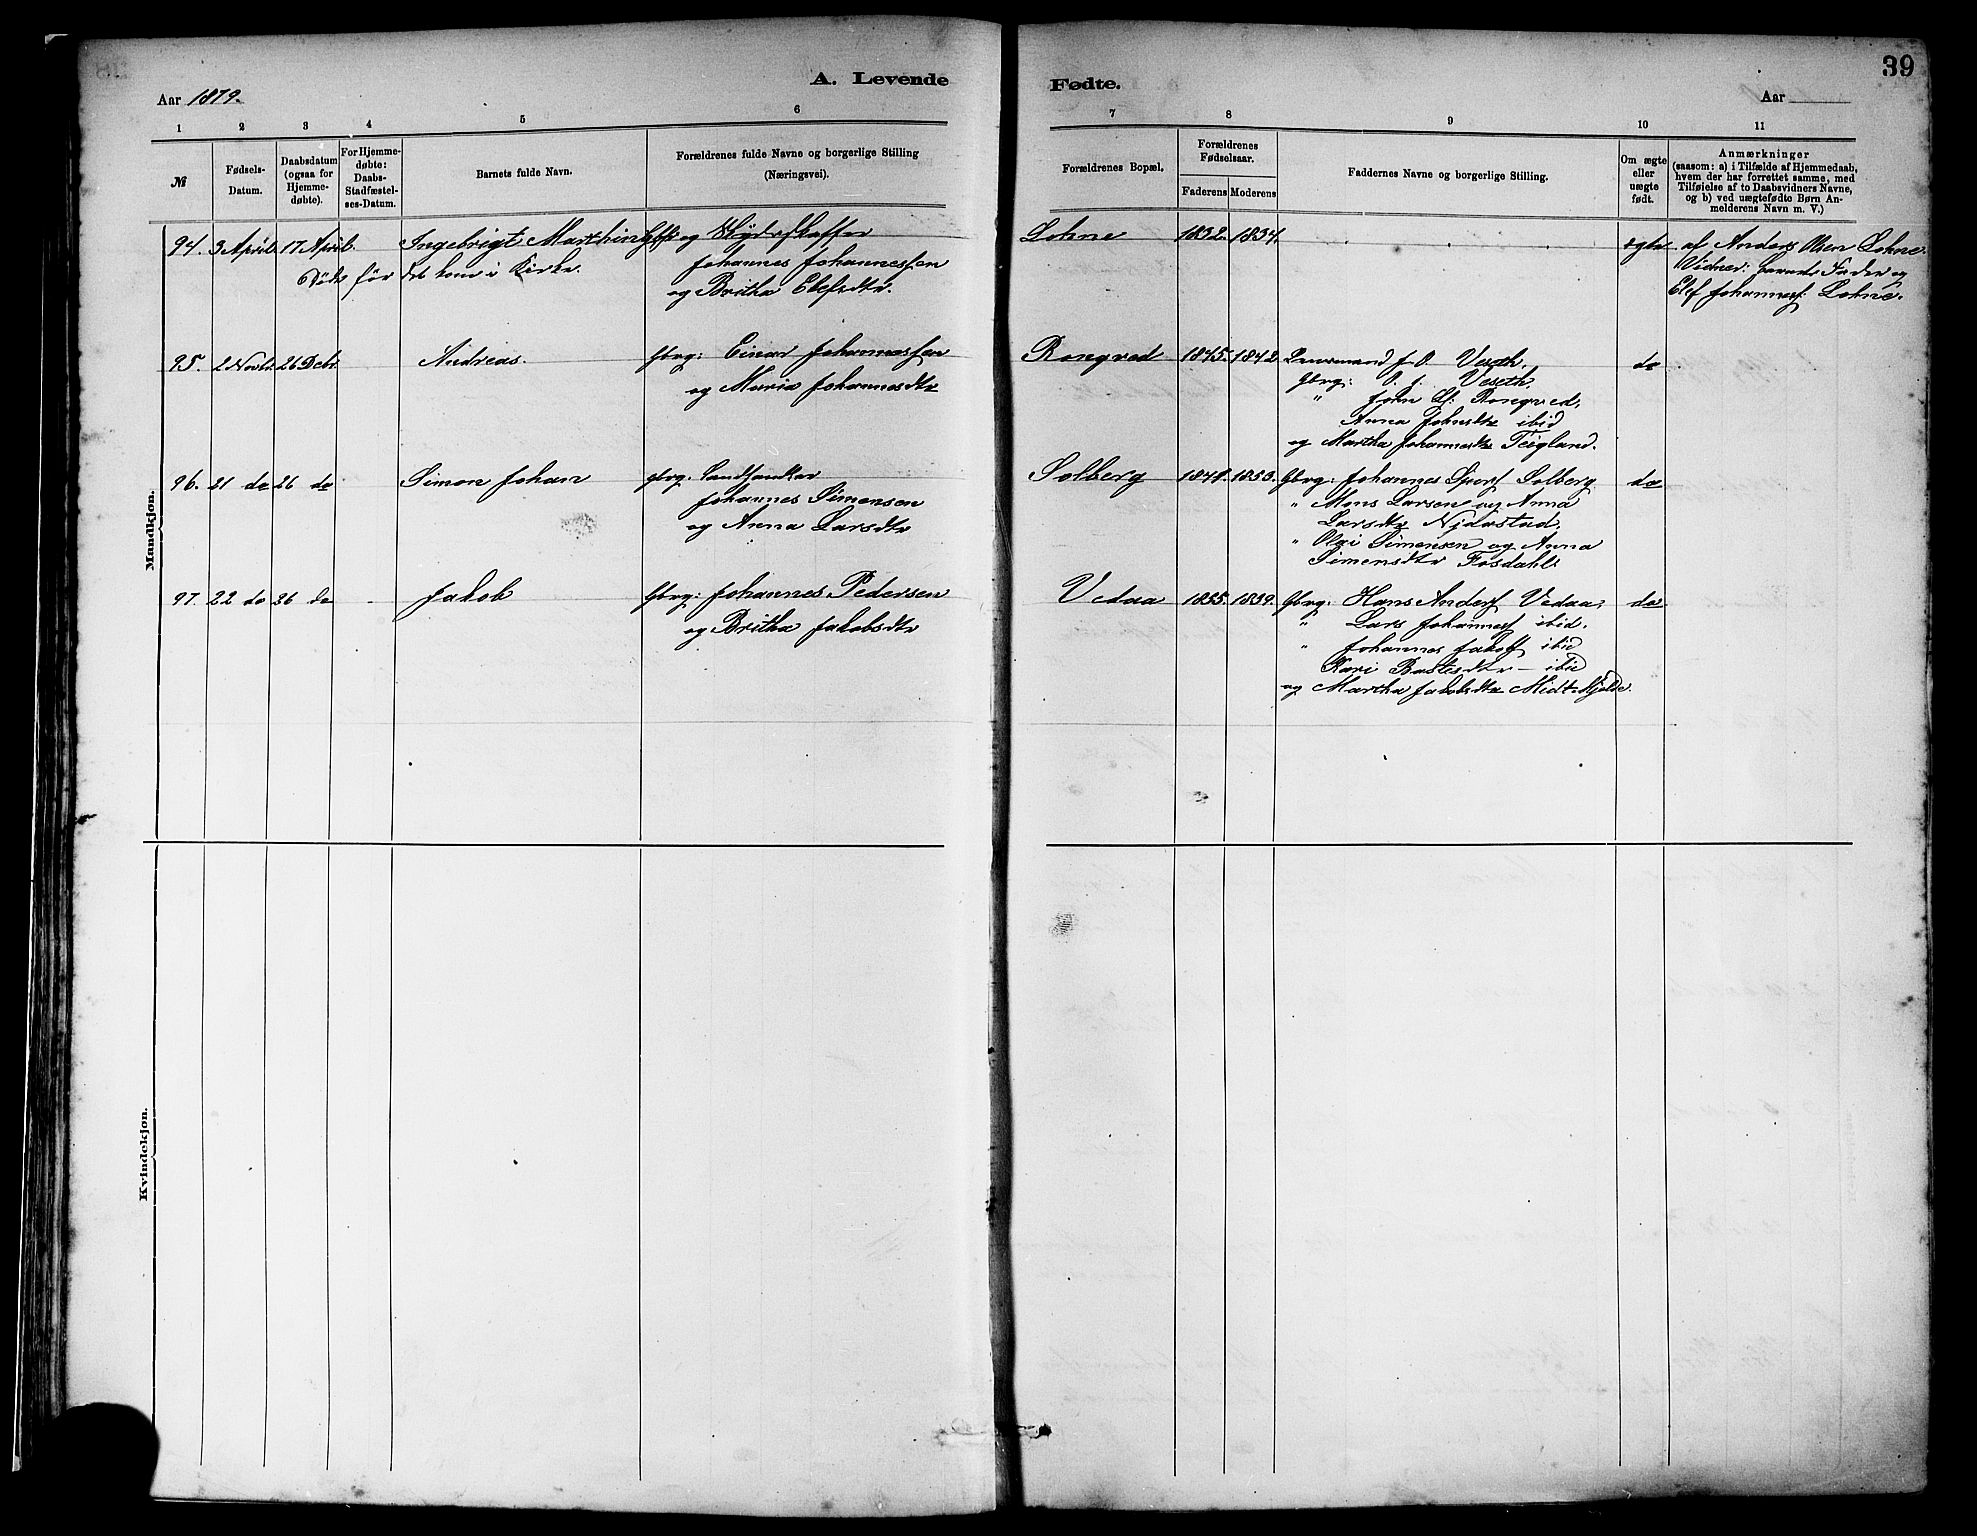 A. Levende
Fødte.
39
Aar 1879.
Aar
1
2
3
4
5
6
7
8
9
10
11
№
Fødsels-
Datum.
Daabsdatum
(ogsaa for
Hjemme-
døbte).
For Hjemme-
døbte:
Daabs-
Stadfæstel-
ses-Datum.
Barnets fulde Navn.
Forældrenes fulde Navne og borgerlige Stilling
(Næringsvei).
Forældrenes Bopæl.
Forældrenes
Fødselsaar.
Faderens
Moderens
Faddernes Navne og borgerlige Stilling.
Om ægte
eller
uægte
født.
Anmærkninger
(saasom: a) i Tilfælde af Hjemmedaab,
hvem der har forrettet samme, med
Tilføielse af to Daabsvidners Navne,
og b) ved uægtefødte Børn An-
melderens Navn m. V.)
Mandkjøn.
94. 3 April 17 April Ingebrigt Marthin
Døde før det kom i Kirke.
og Skydsskaffer
Johannes Johannessen
og Britha Elefsdtr.
Lohne 1832. 1834. ægte
af Anders Olsen Lohne.
Vidner: barnets Fader og
Elef Johannesf. Lohne.
95. 2 Novbr. 26 Debr. Andreas.
Gbrg: Einar Johannessen
og Maria Johannesdtr
Rongved 1845. 1842. do
Lensmand J. O. Veseth.
Gbrg: O. J. Veseth.
" John L: Rongved.
Anna Johnsdtr ibid
og Martha Johannesdtr Teigland.
96. 21 do 26 do Simon Johan
gbrg. Landhandler
Johannes Simensen
og Anna Larsdtr
Solberg 1853. do
Gbrg: Johannes Solberg
" Mons Larsen og Anna
Larsdtr
" Simensen og Anna
Simensdtr Fosdahl
97. 22 do 26 do Jakob
Gbrg: Johannes Pedersen
og Britha Jakobsdtr
Vedaa 1835. 1839. do
Gbrg. Hans Andersf Vedaa,
" Lars Johannesf ibid.
" Johannes Jakobf ibid
Kari ibid
og Martha Jakobsdtr Midt-Mjelde.
Kvindekjøn.